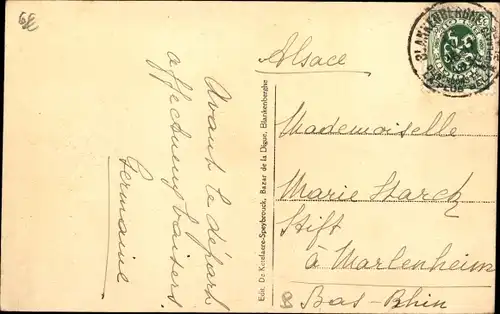 Avant le départ
affectueux baisers.
Germaine
Edit. De Keerlaere-Speybrouck, Bazar de la Digue, Blankenberghe
BLANKENBERGHE
Alsace
Mademoiselle
Marie Starck
Stift
à Marlenheim
Bas-Rhin